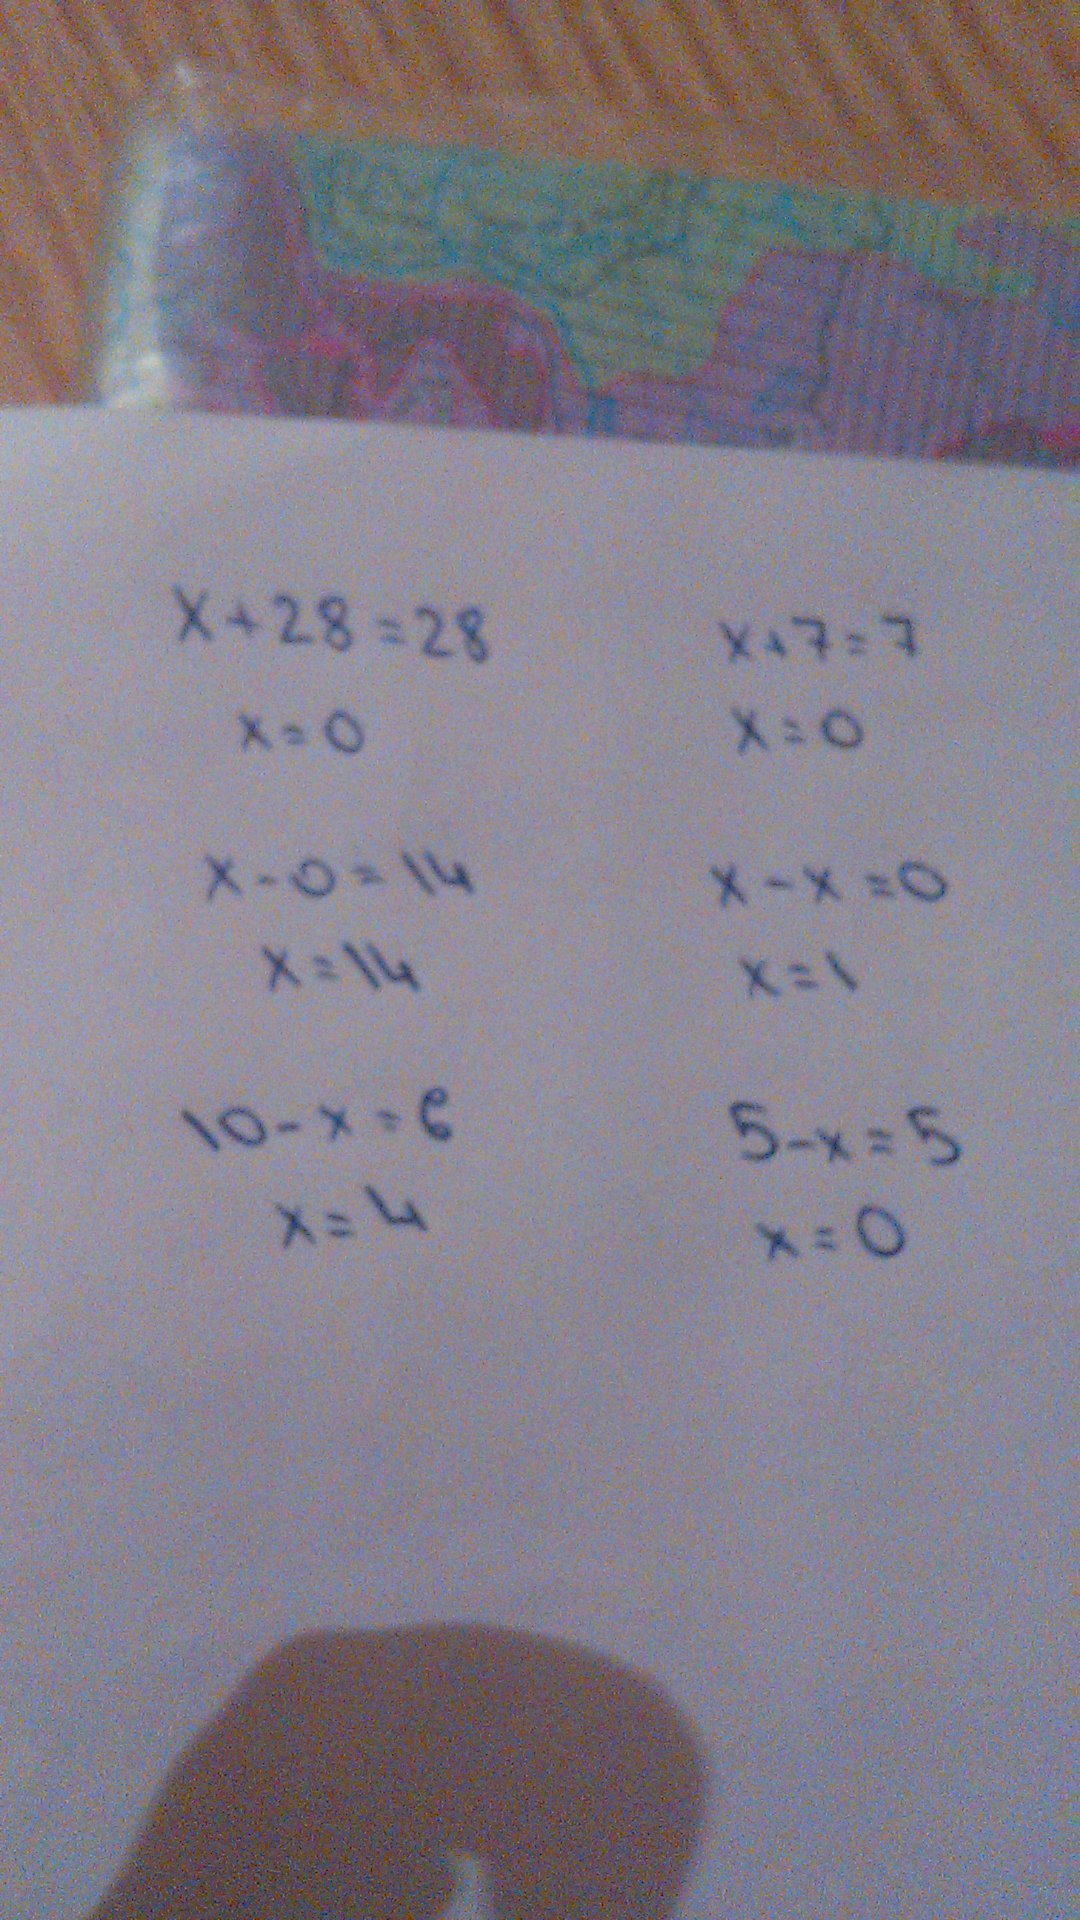 x+28=28
x=0
x+7=7
x=0
x-0=14
x=14
x-x=0
x=1
10-x=6
x=4
5-x=5
x=0